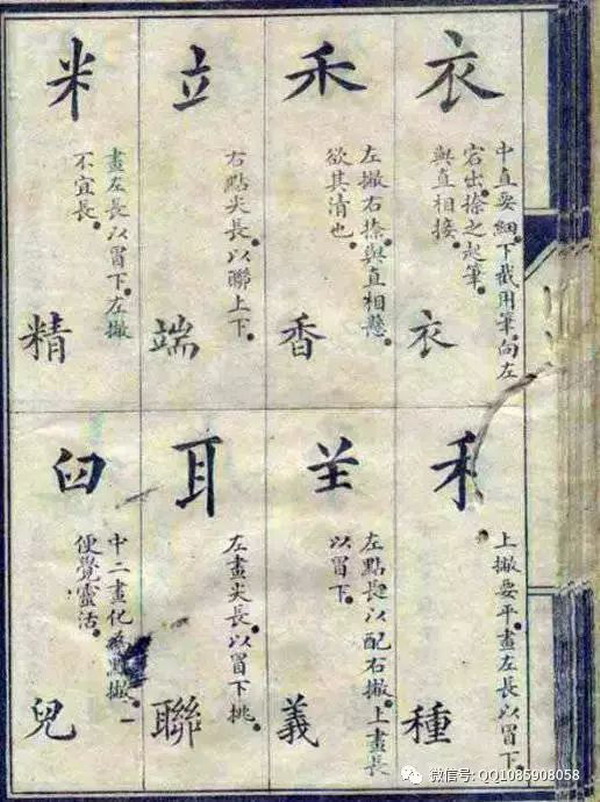 衣
中直要細。下截用筆。向左
宕出。捺之起筆。
與直相接。
衣
禾
左撇右捺。與直相懸。
欲其清也。
香
立
右點尖長。以聯上下。
端
米
畫左長以冒下。左撇
不宜長。
精
禾
上撇要平。畫左長以冒下。
種
𦍌
左點長以配右撇。上畫長
以冒下。
義
耳
左畫尖長。以冒下挑。
聯
臼
中二畫化為點撇。
便覺靈活。
兒
微信号: QQ1085908058